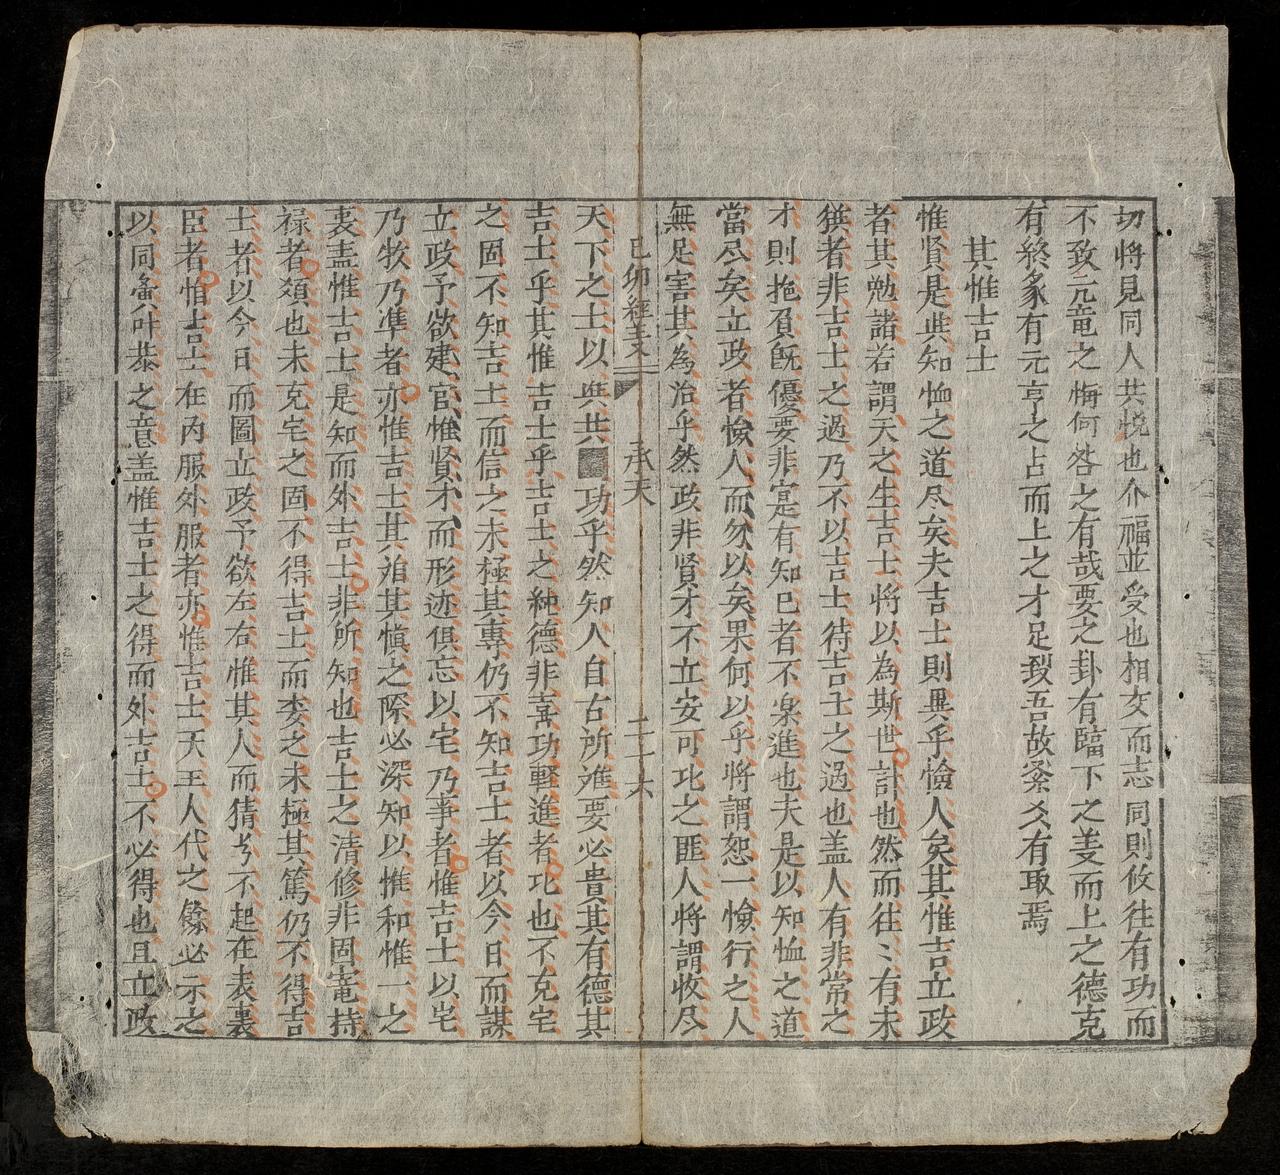 切将見同人共悦也介福並受也相交而志同則攸徃有功而
不致亢竜之悔何咎之有哉要之卦有臨下之美而上之德克
有終象有元亨之占而上之才足
吾故
爻有取焉
其惟吉士
惟賢是與知恤之道尽矣夫吉士則異乎憸人矣其惟吉立政
者其勉諸若謂天之生吉士将以為斯世計也然而往〻有未
獘者非吉士之過乃不以吉士待吉士之過也盖人有非常之
才則抱負既優要非寔有知己者不楽進也夫是以知恤之道
當尽矣立政者憸人而勿以矣果何以乎将謂恕一憸行之人
無足害其為治乎然政非賢才不立安可比之匪人将謂收尽
己卯經義 承天 二十六
天下之士以與共
功乎然知人自古所难要必貴其有德其
吉士乎其惟吉士乎吉士之純德非喜功軽進者比也不克宅
之固不知吉士而信之未極其專仍不知吉士者以今日而謀
立政予欲建官惟賢才而形迹俱忘以宅乃事者惟吉士以宅
乃牧乃準者亦惟吉士其
其慎之際必深知以惟和惟一之
裏盖惟吉士是知而外吉士非所知也吉士之清修非固竉持
禄者類也未克宅之固不得吉士而委之未極其篤仍不得吉
士者以今日而圖立政予欲左右惟其人而猜
不起在表裏
臣者惟吉士在内服外服者亦惟吉士天王人代之
必示之
以同寅叶恭之意盖惟吉士之得而外吉士不必得也且立政